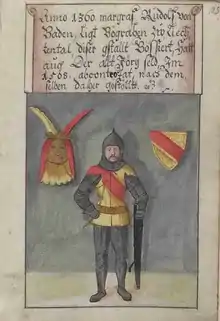 Anno 1360 margraf Rudolf von
Baden, ligt Begraben zu Liech
tental diser gstallt Bossiert hatt
auß Der alt Jörg seld Im
1508. abconterfat, nach dem
selben da her gestollt.